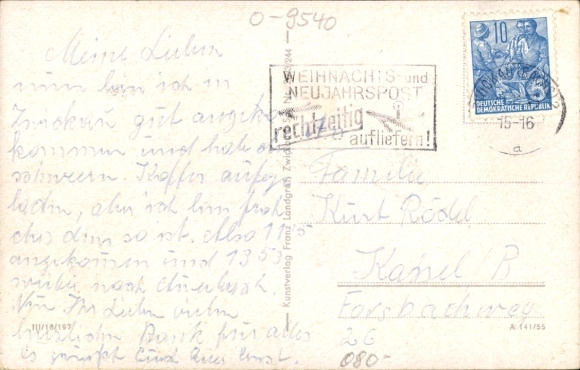 0-9540
Meine Lieben
nun bin ich in
Zwickau gut ange
kommen und hab den
schweren Koffer aufge
laden, aber ich bin froh
das so ist. Also 11 05
angekommen und 13 53
weiter nach Auerbach.
Nun Ihr Lieben vielen
herzlichen Dank für alles
Es grüßt Euch
III/18/197
Kunstverlag Franz Landgraf, Zwickau
244
WEIHNACHTS- und
NEUJAHRSPOST
rechtzeitig
aufliefern!
10
DEUTSCHE
DEMOKRATISCHE REPUBLIK
15-16
a
Familie
Kurt Rödel
Kassel/B
Forsbachweg
26
080-
A 141/55